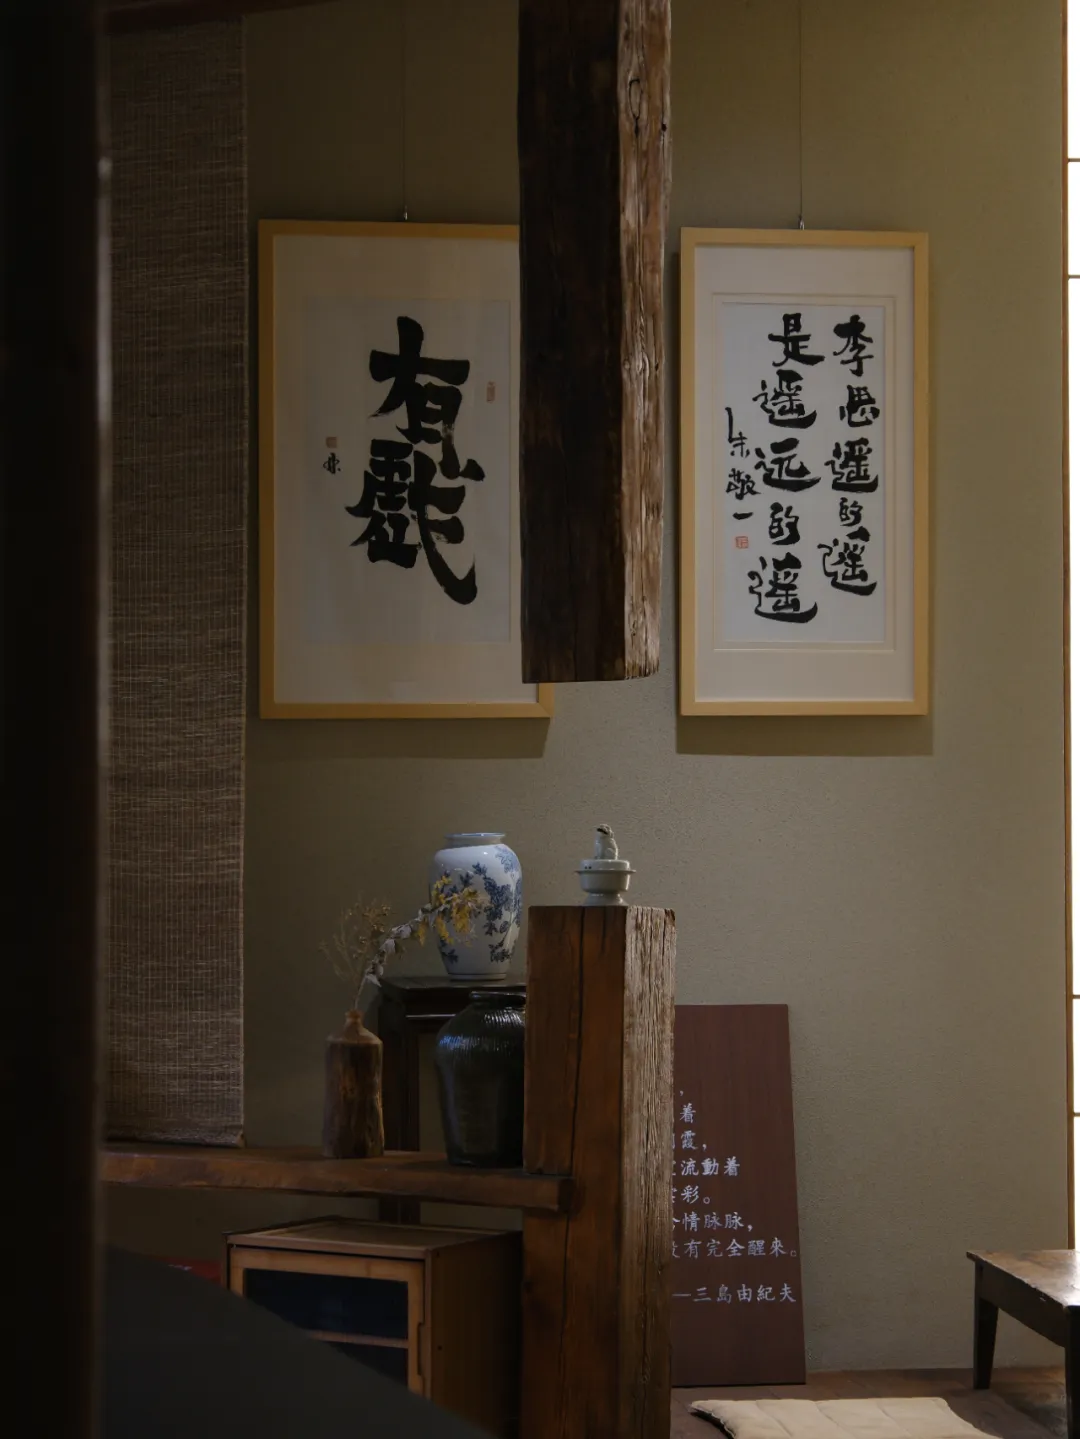 有戲
李思遥的遥
是遥远的遥
朱敬一
，
着
霞，
流動着
彩。
情脉脉，
有完全醒來。
—三島由紀夫